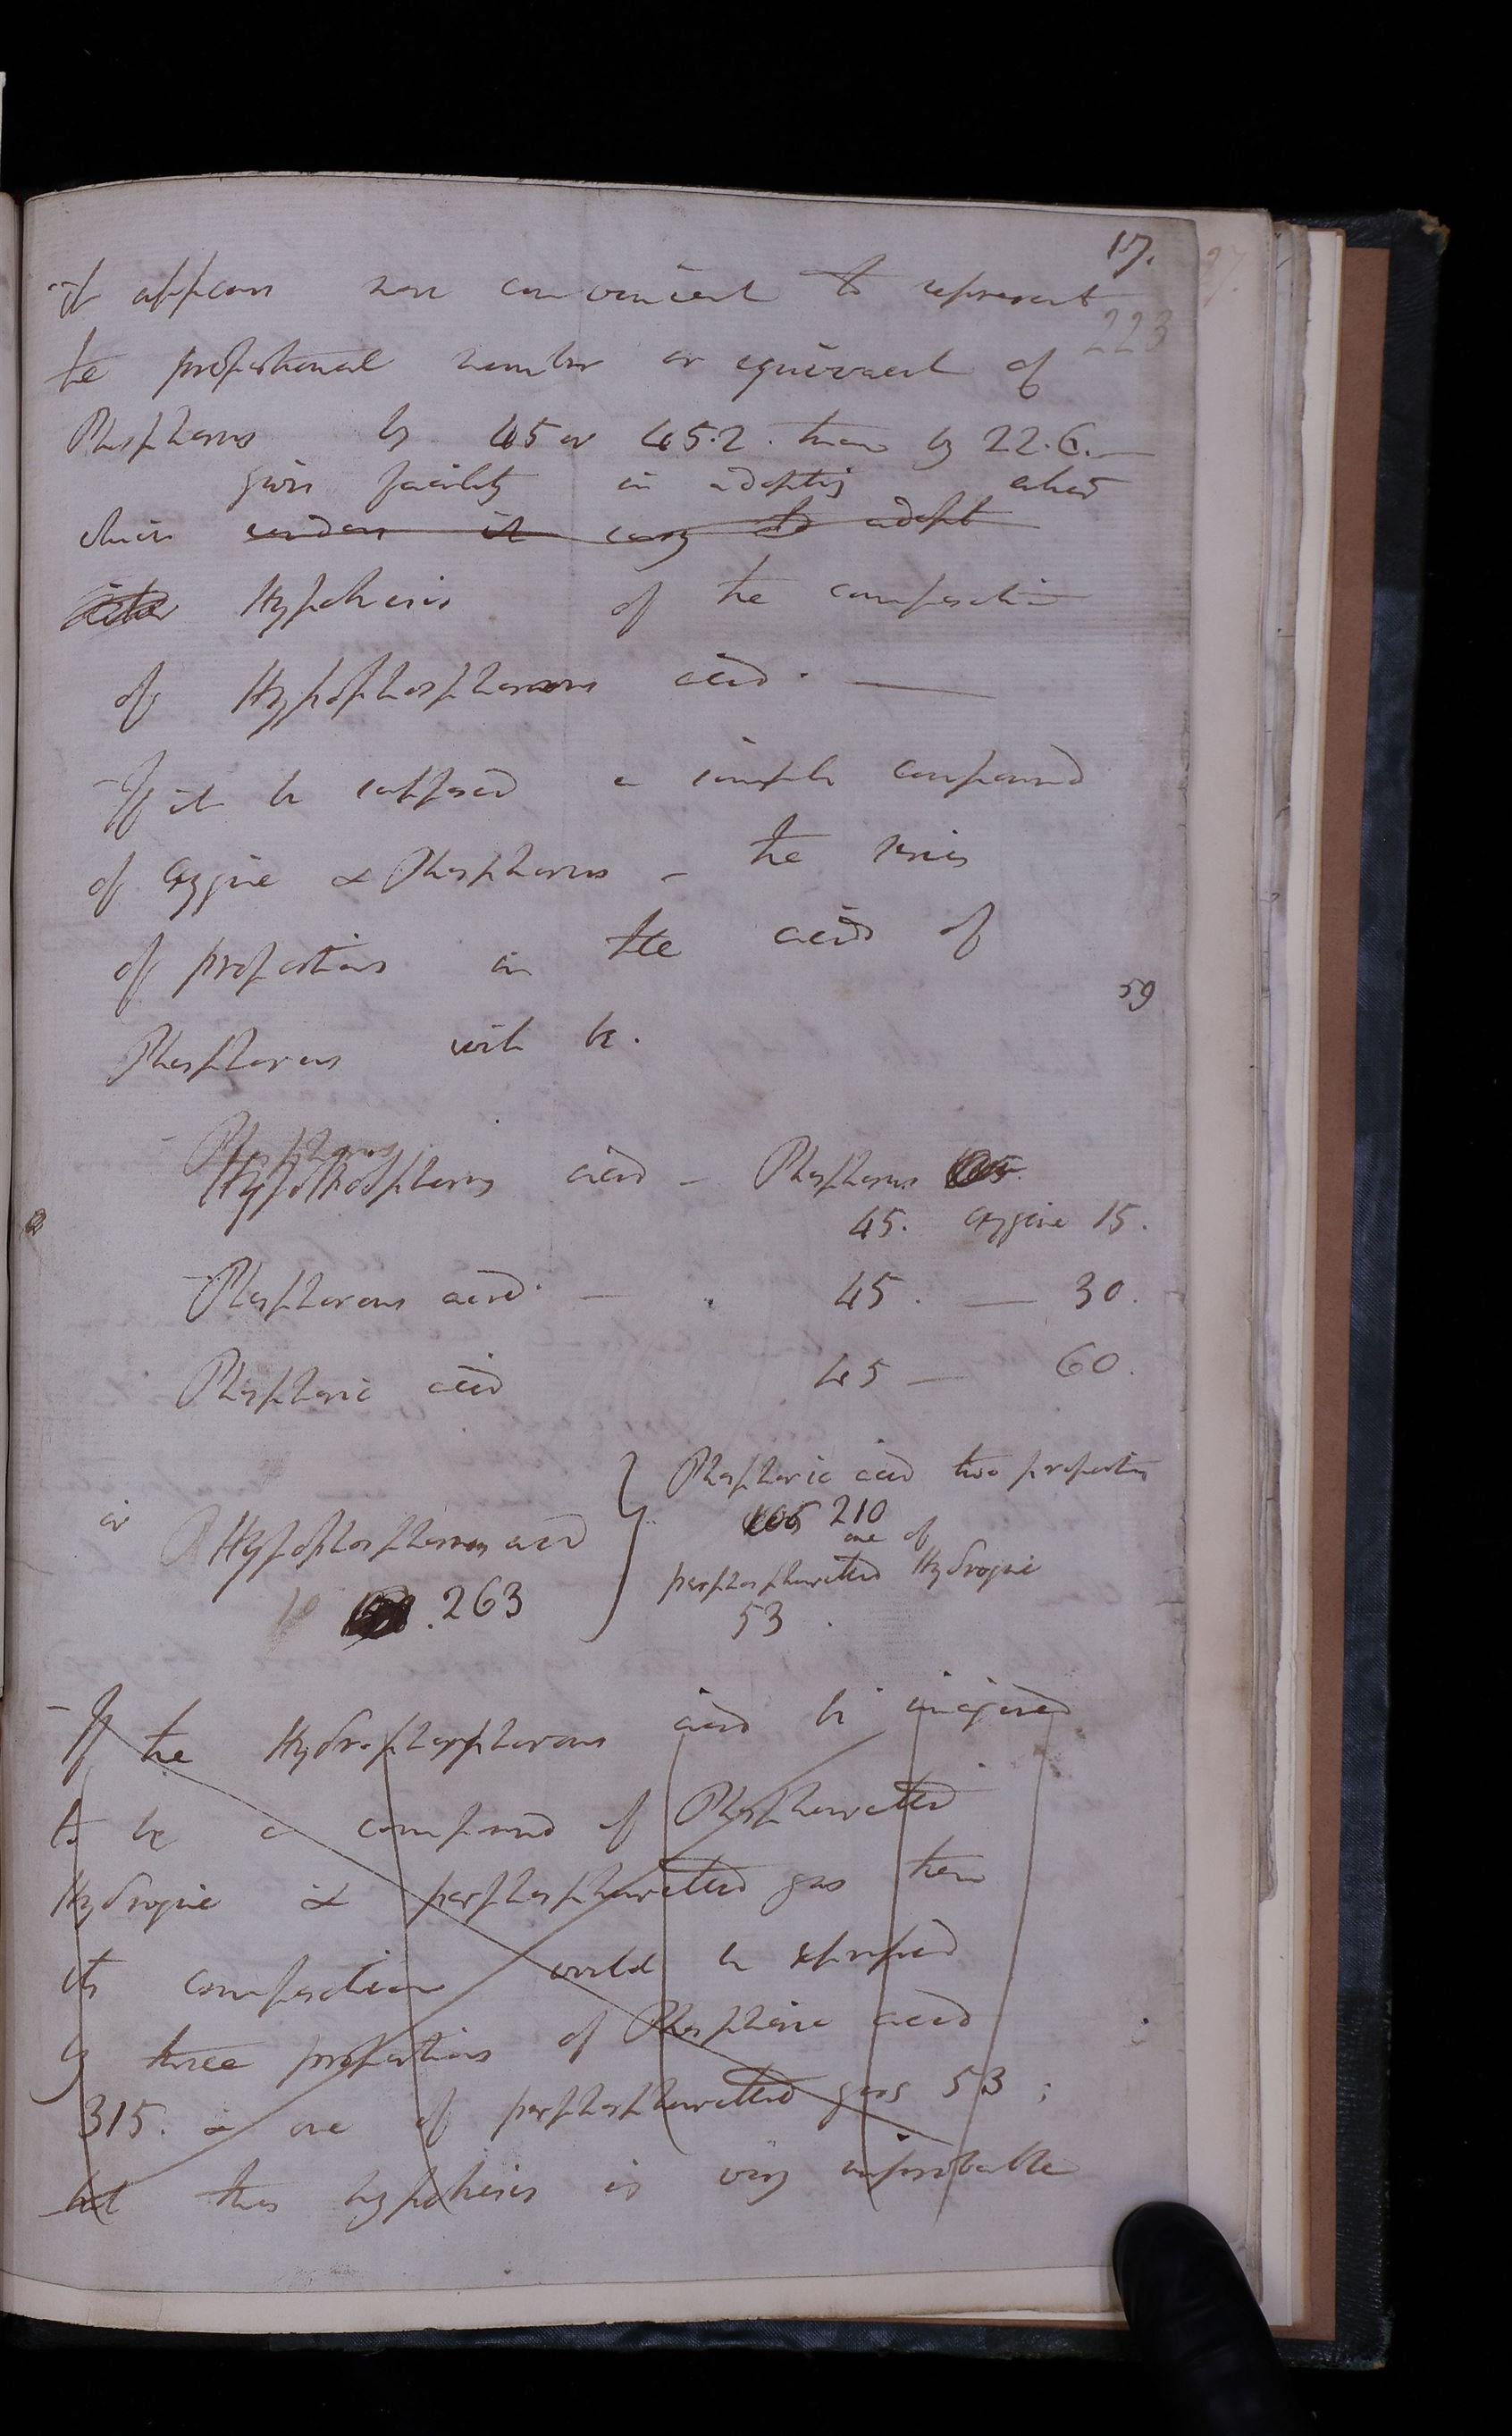 17.
it appears more convenient to represent
223
the proportional number or equivalent of
Phosphorus by 45 or 45.2. than by 22.6.—
gives facility in adopting either
which renders it easy to adopt
Hypothesis of the composition
of Hypophosphorous acid. —
If it be supposed a simple compound
of oxygene & Phosphorus – the series
of proportions in the acids of
59
Phosphorus will be.
Phosphorus
Hypophosphorous acid – Phosphorus
45. oxygene 15.
Phosphorous acid. — 45. — 30.
Phosphoric acid 45 — 60.
Phosphoric acid two proportions
or Hypophosphorous acid
210
one of
perphosphuretted Hydrogene
263
53.
If the Hydrophosphorous acid be conjectured
to be a compound of Phosphuretted
Hydrogene & perphosphuretted gas then
its composition would be expressed
by three proportions of Phosphoric acid
315. & one of perphosphuretted gas 53;
but this hypothesis is very improbable